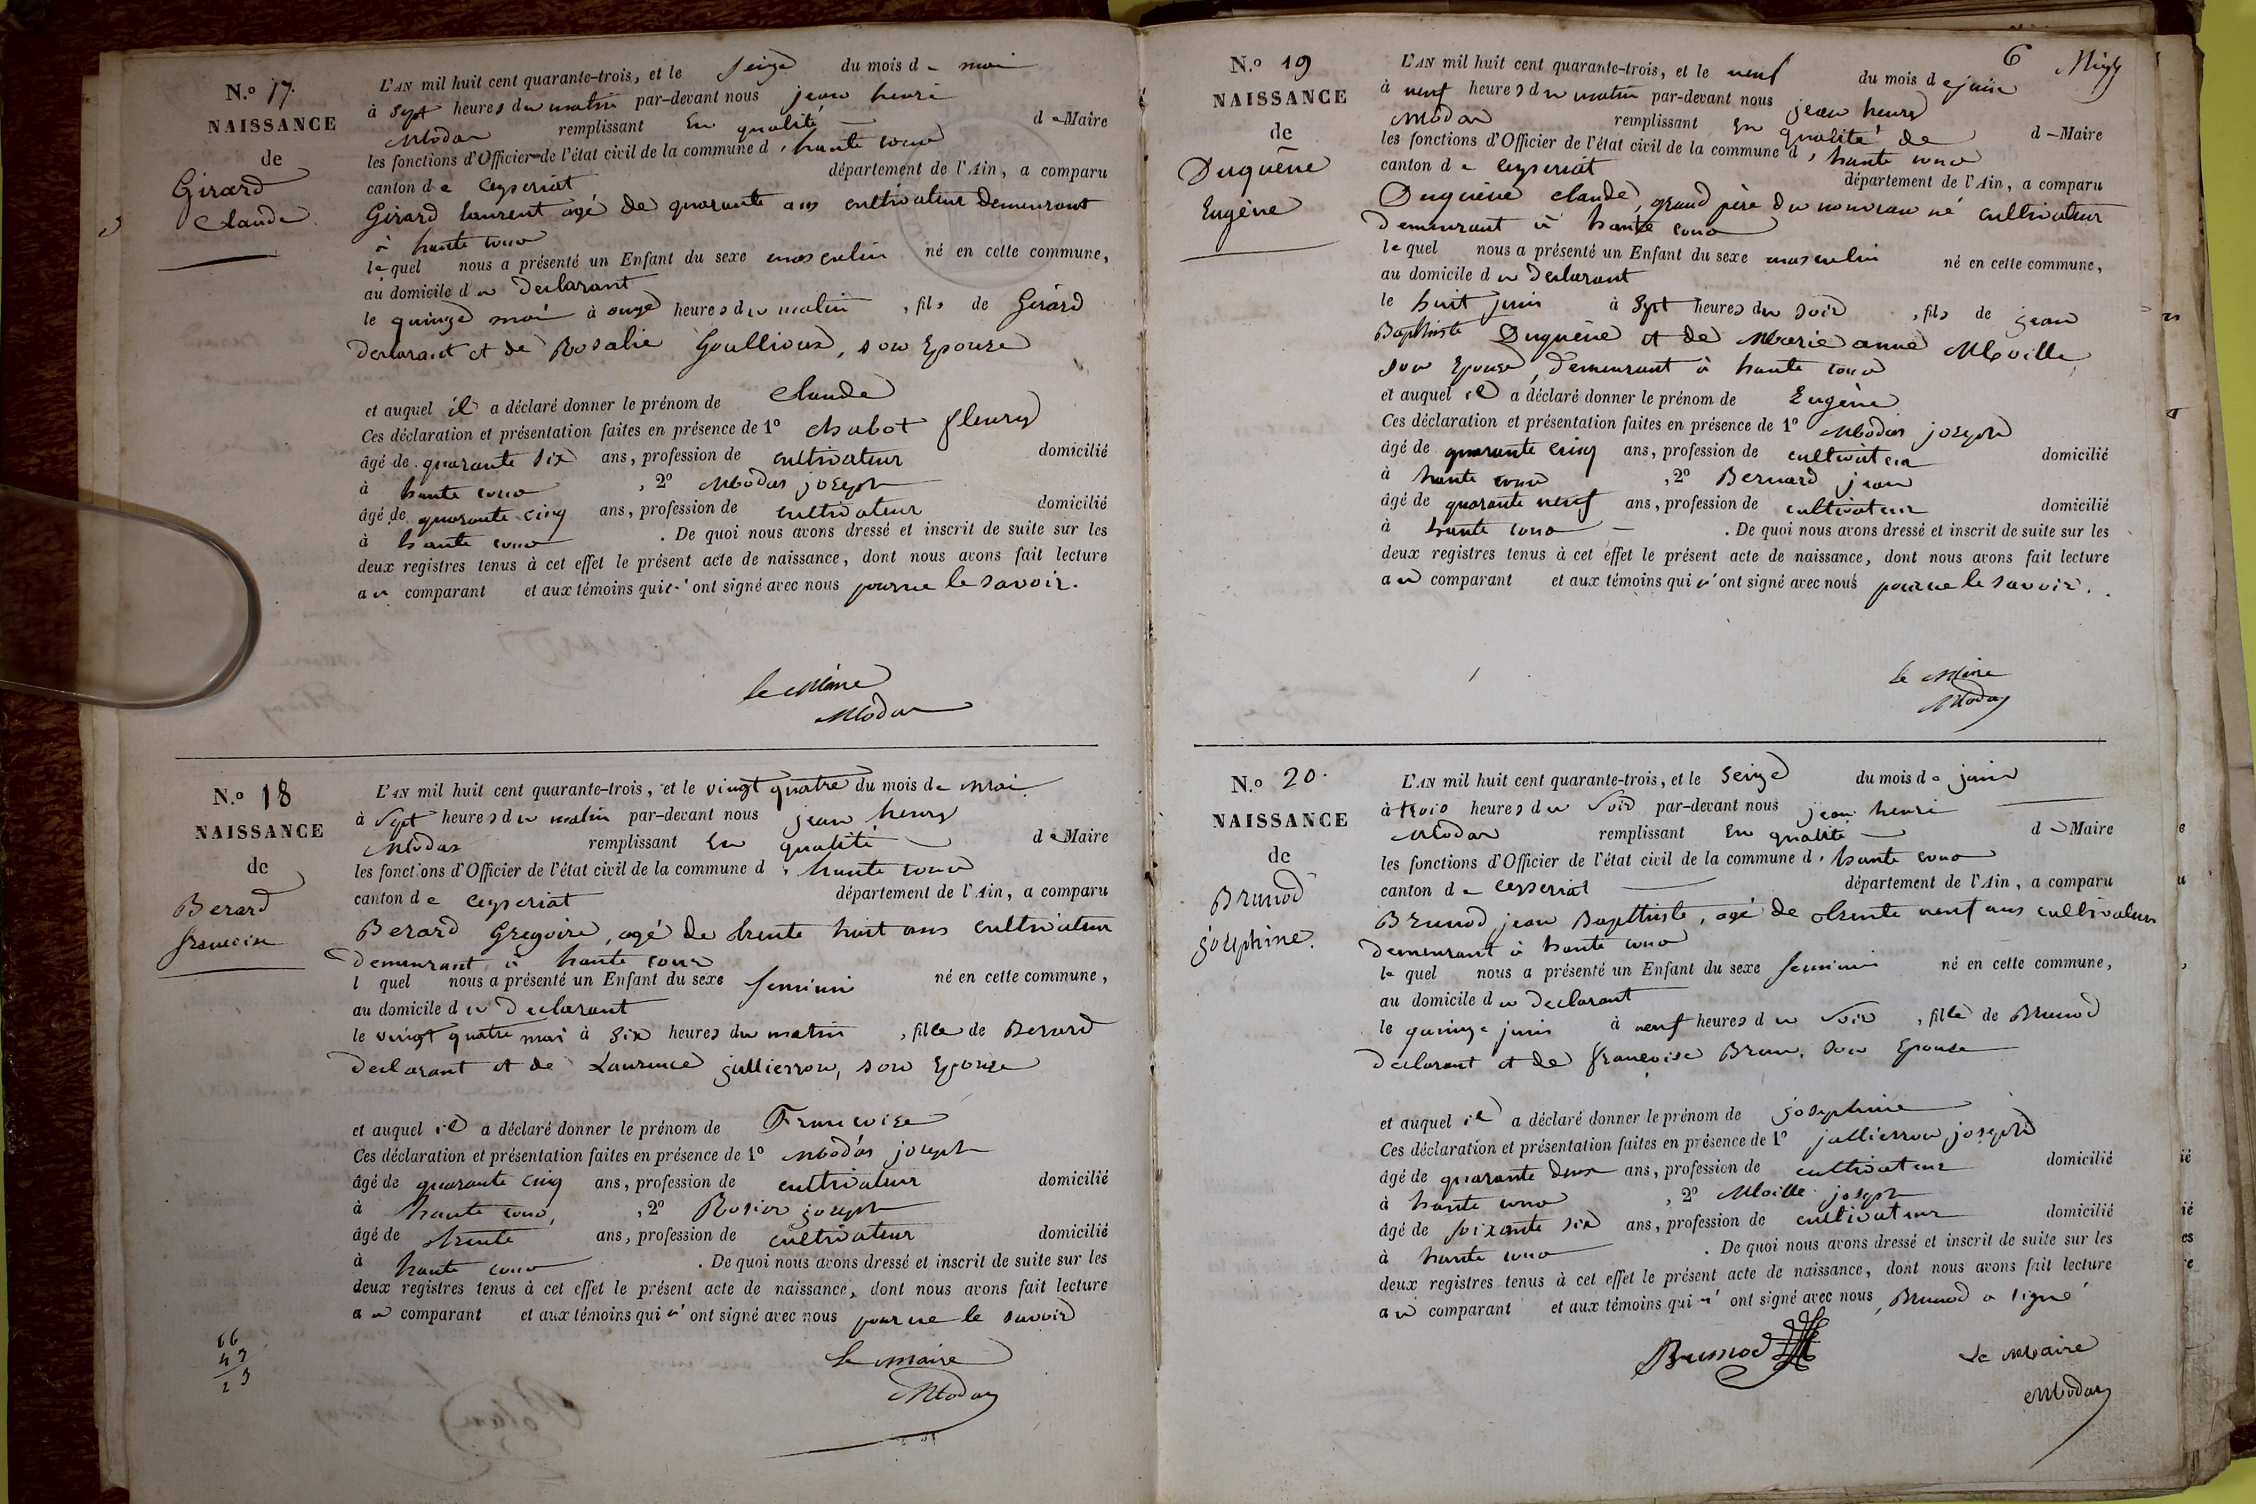 N.º 17.
NAISSANCE
de
Girard
Claude.
L'AN mil huit cent quarante-trois, et le seize du mois de mai
à sept heures du matin par-devant nous jean henri
Modas remplissant en qualité de Maire
les fonctions d'Officier de l'état civil de la commune d haute cour
canton de ceyseriat département de l'Ain, a comparu
Girard laurent agé de quarante ans cultivateur demeurant
à haute cour
lequel nous a présenté un Enfant du sexe masculin né en cette commune,
au domicile du declarant
le quinze mai à onze heures du matin, fils de Girard
declarant et de Rosalie Goullioux, son Epouse
et auquel il a déclaré donner le prénom de Claude
Ces déclaration et présentation faites en présence de 1º chabot fleury
âgé de quarante six ans, profession de cultivateur domicilié
à haute cour, 2º Modas joseph
âgé de quarante cinq ans, profession de cultivateur domicilié
à haute cour. De quoi nous avons dressé et inscrit de suite sur les
deux registres tenus à cet effet le présent acte de naissance, dont nous avons fait lecture
au comparant et aux témoins qui n'ont signé avec nous pour ne le savoir.
le Maire
Modas
N.º 18
NAISSANCE
de
Berard
francoise
L'AN mil huit cent quarante-trois, et le vingt quatre du mois de Mai
à sept heures du matin par-devant nous jean henry
Modas remplissant en qualité de Maire
les fonctions d'Officier de l'état civil de la commune d haute cour
canton de ceyseriat département de l'Ain, a comparu
Berard Gregoire, agé de trente huit ans cultivateur
demeurant à haute cour
l quel nous a présenté un Enfant du sexe feminin né en cette commune,
au domicile du declarant
le vingt quatre mai à six heures du matin, fille de Berard
declarant et de Laurence jullierron, son Epouse
et auquel il a déclaré donner le prénom de Francoise
Ces déclaration et présentation faites en présence de 1º Modas joseph
âgé de quarante cinq ans, profession de cultivateur domicilié
à haute cour, 2º Rosier joseph
âgé de trente ans, profession de cultivateur domicilié
à haute cour. De quoi nous avons dressé et inscrit de suite sur les
deux registres tenus à cet effet le présent acte de naissance, dont nous avons fait lecture
au comparant et aux témoins qui n'ont signé avec nous pour ne le savoir
66
43
23
le maire
Modas
6
N.º 19
NAISSANCE
de
Duquène
Eugène
L'AN mil huit cent quarante-trois, et le neuf du mois de juin
à neuf heures du matin par-devant nous jean henry
Modas remplissant en qualité de de Maire
les fonctions d'Officier de l'état civil de la commune d haute cour
canton de ceyseriat département de l'Ain, a comparu
Duquène claude, grand père du nouveau né cultivateur
demeurant à haute cour
lequel nous a présenté un Enfant du sexe masculin né en cette commune,
au domicile du declarant
le huit juin à sept heures du soir, fils de jean
Baptiste Duquène et de Marie anne Moville,
son Epouse, demeurant à haute cour
et auquel il a déclaré donner le prénom de Eugène
Ces déclaration et présentation faites en présence de 1º Modas joseph
âgé de quarante cinq ans, profession de cultivateur domicilié
à haute cour, 2º Bernard jean
âgé de quarante neuf ans, profession de cultivateur domicilié
à haute cour. De quoi nous avons dressé et inscrit de suite sur les
deux registres tenus à cet effet le présent acte de naissance, dont nous avons fait lecture
au comparant et aux témoins qui n'ont signé avec nous pour ne le savoir.
le Maire
Modas
N.º 20.
NAISSANCE
de
Brunod
josephine.
L'AN mil huit cent quarante-trois, et le seize du mois de juin
à trois heures du soir par-devant nous jean henri
Modas remplissant en qualité de Maire
les fonctions d'Officier de l'état civil de la commune d haute cour
canton de ceyseriat département de l'Ain, a comparu
Brunod jean Baptiste, agé de trente neuf ans cultivateur
demeurant à haute cour
le quel nous a présenté un Enfant du sexe feminin né en cette commune,
au domicile du declarant
le quinze juin à neuf heures du soir, fille de Brunod
declarant et de françoise Brun, son Epouse
et auquel il a déclaré donner le prénom de josephine
Ces déclaration et présentation faites en présence de 1º jullierron joseph
âgé de quarante deux ans, profession de cultivateur domicilié
à haute cour, 2º Moille joseph
âgé de soixante six ans, profession de cultivateur domicilié
à haute cour. De quoi nous avons dressé et inscrit de suite sur les
deux registres tenus à cet effet le présent acte de naissance, dont nous avons fait lecture
au comparant et aux témoins qui n'ont signé avec nous, Brunod a signé
Brunod
Le Maire
Modas